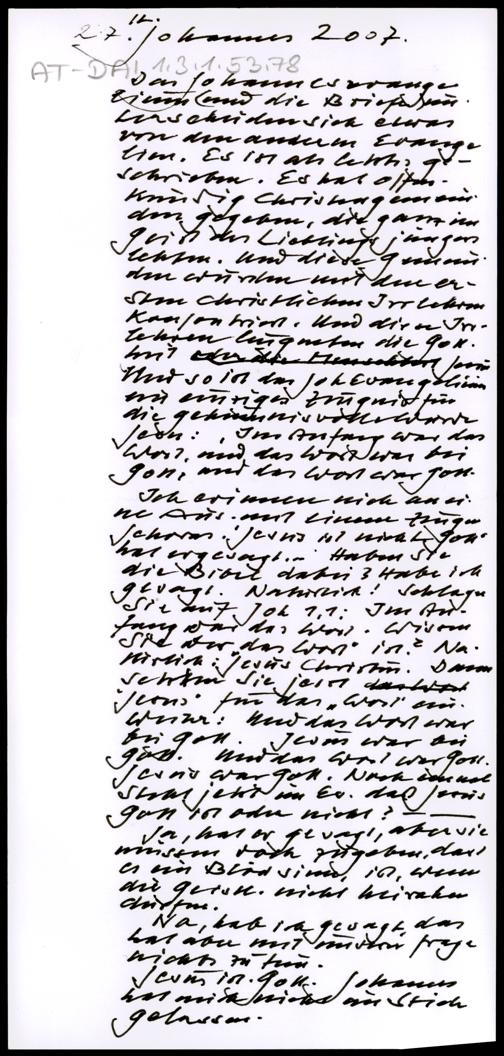 27.12. Johannes 2007.
AT-DAI 1.3.1.53.78
Das Johannesevange
lium und die Briefe un
terscheiden sich etwas
von den anderen Evange
lien. Es ist als letztes ge-
schrieben. Es hat offen-
kundig Christengemein
den gegeben, die ganz im
Geist des Lieblingsjüngers
lebten. Und diese Gemein
den wurden mit den er-
sten christlichen Irrlehren
konfontriert. Und diese Irr-
lehren leugneten die Gott.
heit oder die Menschheit Jesu
Und so ist das JohEvangelium
ein einziges Zeugnis für
die geheimnisvolle Würde
Jesu: "Im Anfang war das
Wort, und das Wort war bei
Gott, und das Wort war Gott
Ich erinnere mich an ei
ne Aus. mit einem Zeugen
Jehovas. "Jesus ist nicht Gott"
hat er gesagt. - Haben Sie
die Bibel dabei? Habe ich
gesagt. Natürlich! Schlagen
Sie auf Joh 1,1: Im An-
fang war das Wort. Wissen
Sie wer das "Wort" ist? Na-
türlich: Jesus Christus. Dann
setzen Sie jetzt das Wort
"Jesus" für das "Wort" ein.
Weiter: Und das Wort war
bei Gott. Jesus war bei
Gott. Und das Wort war Gott.
Jesus war Gott. Noch einmal
Steht jetzt im Ev. daß Jesus
Gott ist oder nicht? -
Ja, hat er gesagt, aber sie
müssen doch zugeben, dass
es ein Blödsinn ist, wenn
die Geistl. nicht heiraten
dürfen.
Na, hab ich gesagt, das
hat aber mit unserer Frage
nichts zu tun.
Jesus ist Gott. Johannes
hat mich nicht im Stich
gelassen.